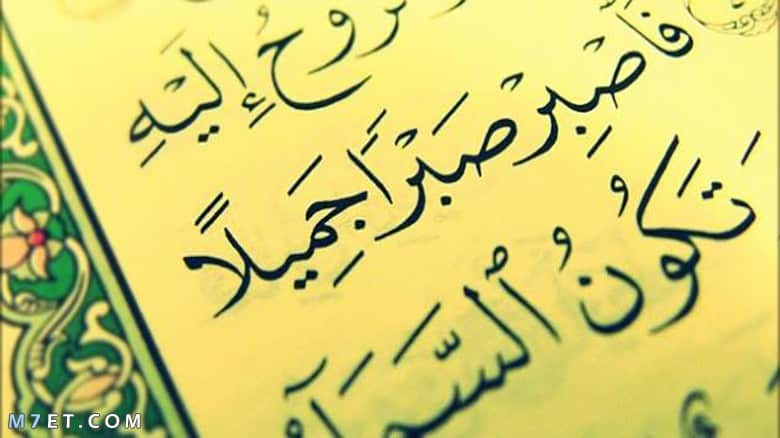 رُّوحُ إِلَيْهِ
فَٱصْبِرْ صَبْرًا جَمِيلًا
تَكُونُ ٱلسَّمَآ
M7ET.COM